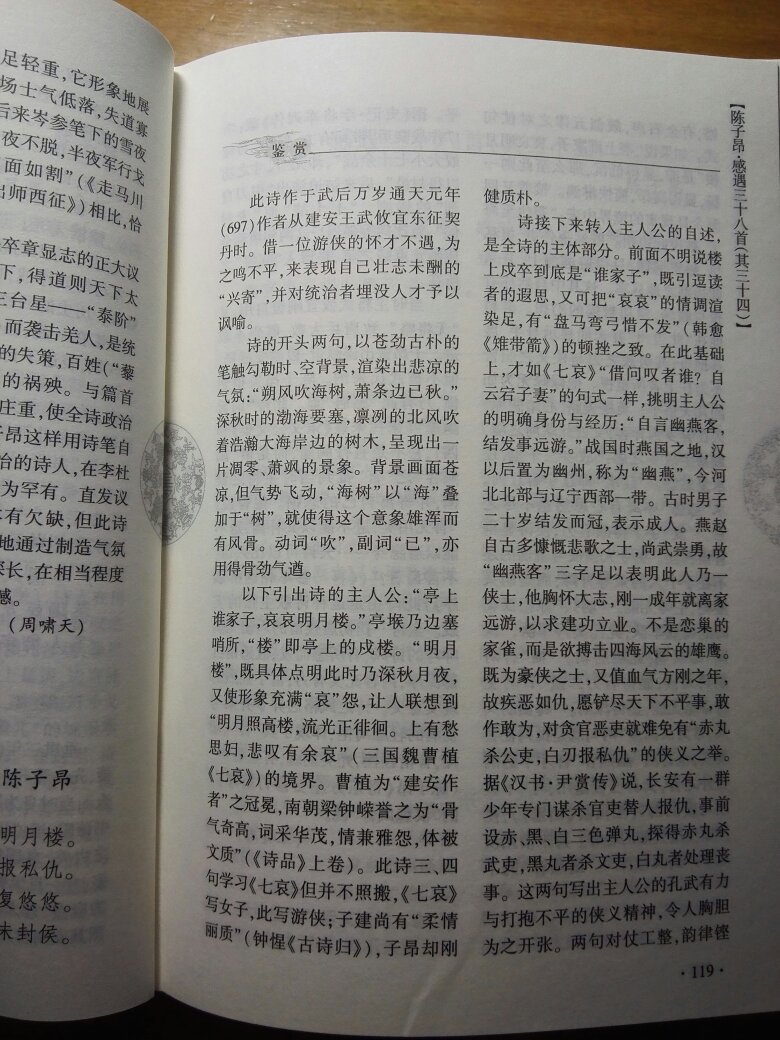 足轻重，它形象地展
场士气低落，失道寡
后来岑参笔下的雪夜
夜不脱，半夜军行戈
面如割”（《走马川
出师西征》）相比，恰
卒章显志的正大议
下，得道则天下太
三台星——“泰阶”
而袭击羌人，是统
的失策，百姓（“藜
的祸殃。与篇首
庄重，使全诗政治
子昂这样用诗笔自
治的诗人，在李杜
为罕有。直发议
有欠缺，但此诗
地通过制造气氛
深长，在相当程度
感。
（周啸天）
陈子昂
明月楼。
报私仇。
复悠悠。
未封侯。
鉴赏
此诗作于武后万岁通天元年
(697)作者从建安王武攸宜东征契
丹时。借一位游侠的怀才不遇，为
之鸣不平，来表现自己壮志未酬的
“兴寄”，并对统治者埋没人才予以
讽喻。
诗的开头两句，以苍劲古朴的
笔触勾勒时、空背景，渲染出悲凉的
气氛：“朔风吹海树，萧条边已秋。”
深秋时的渤海要塞，凛冽的北风吹
着浩瀚大海岸边的树木，呈现出一
片凋零、萧飒的景象。背景画面苍
凉，但气势飞动，“海树”以“海”叠
加于“树”，就使得这个意象雄浑而
有风骨。动词“吹”，副词“已”，亦
用得骨劲气遒。
以下引出诗的主人公：“亭上
谁家子，哀哀明月楼。”亭堠乃边塞
哨所，“楼”即亭上的戍楼。“明月
楼”，既具体点明此时乃深秋月夜，
又使形象充满“哀”怨，让人联想到
“明月照高楼，流光正徘徊。上有愁
思妇，悲叹有余哀”（三国魏曹植
《七哀》）的境界。曹植为“建安作
者”之冠冕，南朝梁钟嵘誉之为“骨
气奇高，词采华茂，情兼雅怨，体被
文质”（《诗品》上卷）。此诗三、四
句学习《七哀》但并不照搬，《七哀》
写女子，此写游侠；子建尚有“柔情
丽质”（钟惺《古诗归》），子昂却刚
健质朴。
诗接下来转入主人公的自述，
是全诗的主体部分。前面不明说楼
上戍卒到底是“谁家子”，既引逗读
者的遐思，又可把“哀哀”的情调渲
染足，有“盘马弯弓惜不发”（韩愈
《雉带箭》）的顿挫之致。在此基础
上，才如《七哀》“借问叹者谁？自
云宕子妻”的句式一样，挑明主人公
的明确身份与经历：“自言幽燕客，
结发事远游。”战国时燕国之地，汉
以后置为幽州，称为“幽燕”，今河
北北部与辽宁西部一带。古时男子
二十岁结发而冠，表示成人。燕赵
自古多慷慨悲歌之士，尚武崇勇，故
“幽燕客”三字足以表明此人乃一
侠士，他胸怀大志，刚一成年就离家
远游，以求建功立业。不是恋巢的
家雀，而是欲搏击四海风云的雄鹰。
既为豪侠之士，又值血气方刚之年，
故疾恶如仇，愿铲尽天下不平事，敢
作敢为，对贪官恶吏就难免有“赤丸
杀公吏，白刃报私仇”的侠义之举。
据《汉书·尹赏传》说，长安有一群
少年专门谋杀官吏替人报仇，事前
设赤、黑、白三色弹丸，探得赤丸杀
武吏，黑丸者杀文吏，白丸者处理丧
事。这两句写出主人公的孔武有力
与打抱不平的侠义精神，令人胸胆
为之开张。两句对仗工整，韵律铿
【陈子昂·感遇三十八首（其三十四）】
·119·